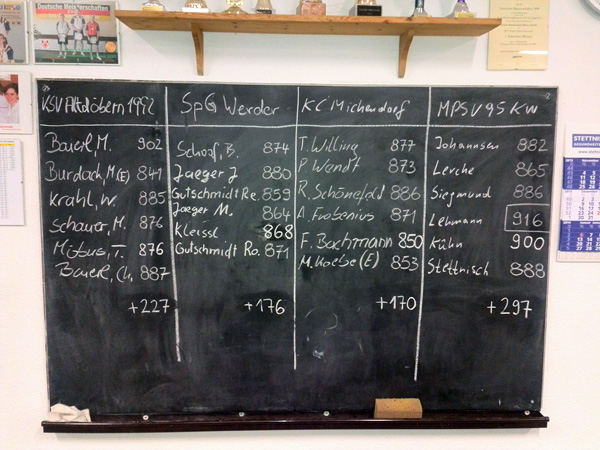 Deutsche Meisterschaften
VSV Altdöbern 1992
Bauerl, M. 902
Burdack, M (E) 841
Krahl, W. 885
Schauer, M. 876
Mitus, T. 876
Bauerl, Ch. 887
+227
SpG Werder
Schopf, B. 874
Jaeger J 880
Gutschmidt Re. 859
Jaeger M. 864
Kleissl 868
Gutschmidt Ro. 871
+176
KC Michendorf
T. Willing 877
P. Wendt 873
R. Schönefeld 886
A. Frobenius 871
F. Bachmann 850
M. Koebe (E) 853
+170
MPSV 95 KW
Johannsen 882
Lerche 865
Siegmund 886
Lehmann 916
Kühn 900
Stettnisch 888
+297
STETTNISCH